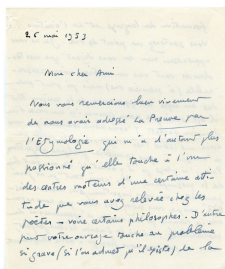 25 mai 1953
Mon cher Ami
Nous vous remercions bien vivement
de nous avoir adressé La Preuve par
l'Etymologie qui m'a d'autant plus
passionné qu'elle touche à l'un
des centres moteurs d'une certaine atti-
tude que vous avez relevée chez les
poètes – voire certains philosophes. D'autre
part votre ouvrage touche au problème
si grave (si l'on admet qu'il existe) de la